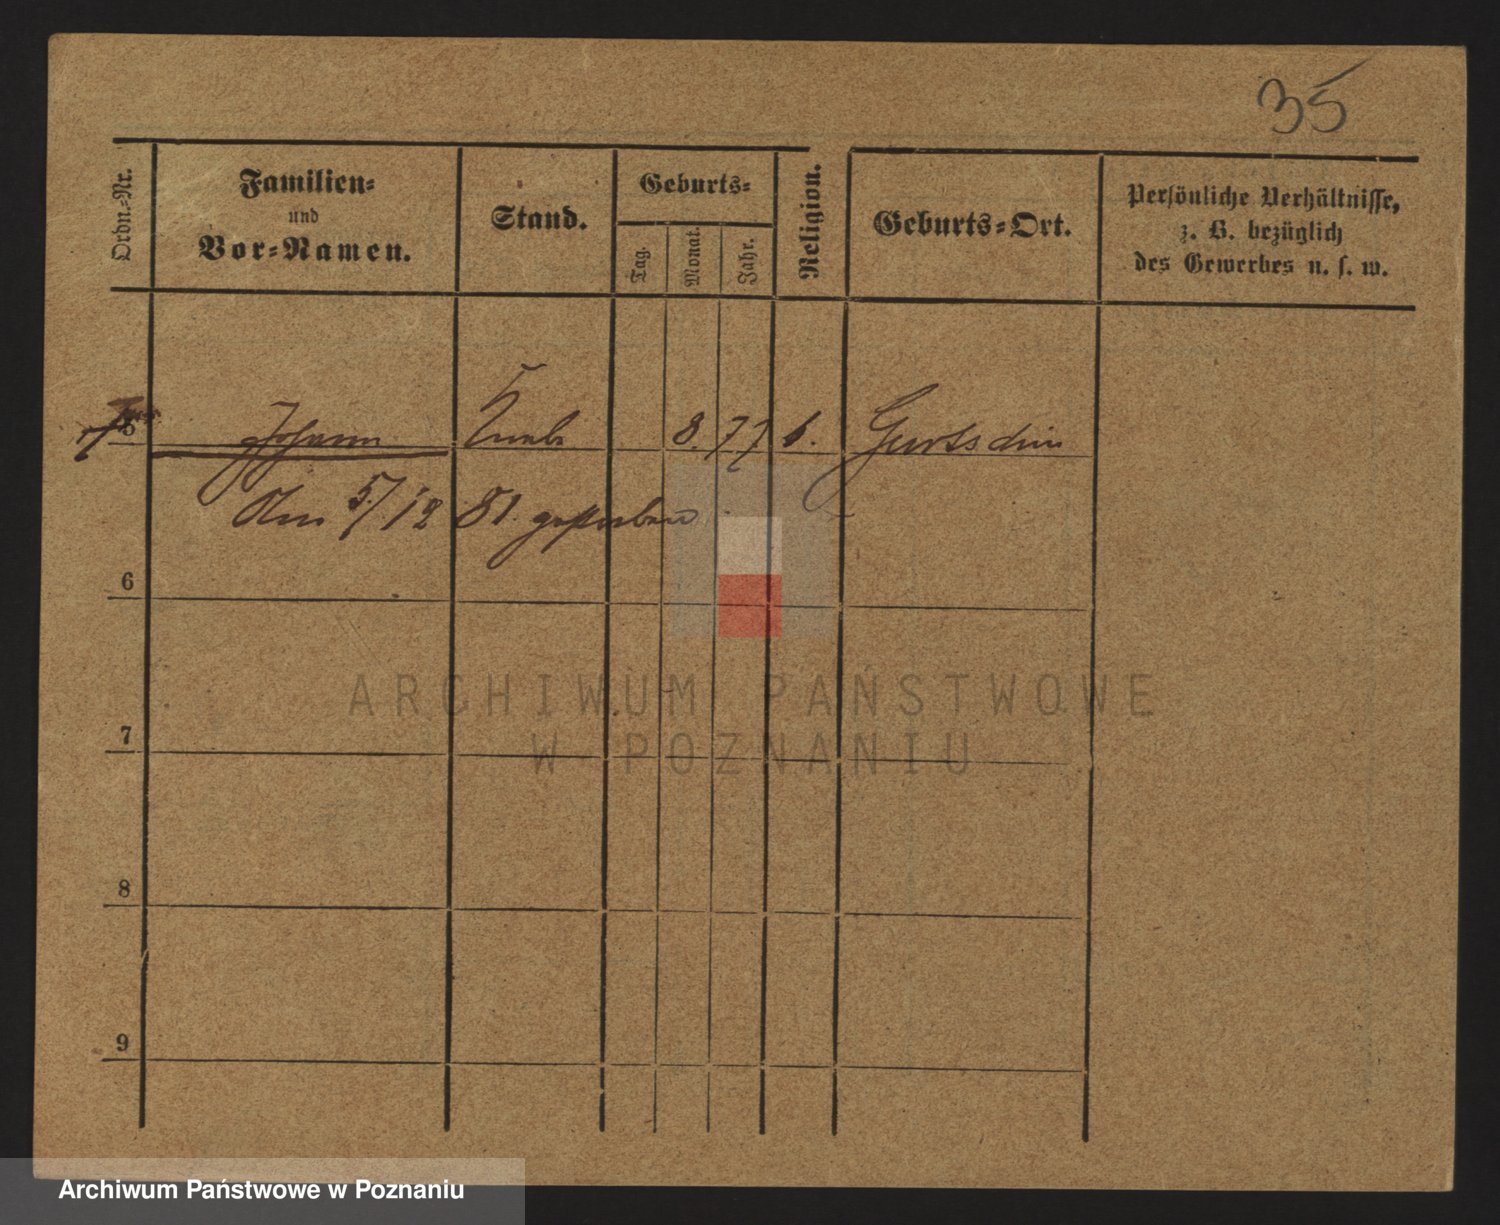 35
Ordn.-Nr.
Familien-
und
Vor-Namen.
Stand.
Geburts-
Tag.
Monat.
Jahr.
Religion.
Geburts-Ort.
Persönliche Verhältnisse,
z. B. bezüglich
des Gewerbes u. s. w.
5 Johann 8. 77
5/12 81. gestorben
6
7
8
9
ARCHIWUM PAŃSTWOWE
W POZNANIU
Archiwum Państwowe w Poznaniu